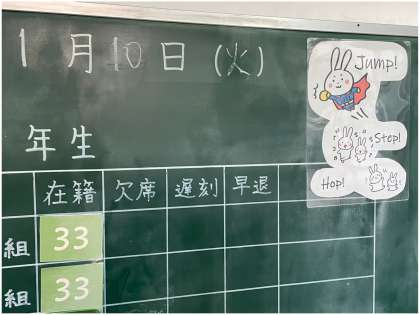 1月10日(火)
Jump!
Step!
Hop!
年生
在籍 欠席 遅刻 早退
組 33
組 33